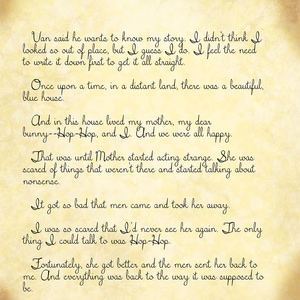 Van said he wants to know my story. I didn't think I
looked so out of place, but I guess I do. I feel the need
to write it down first to get it all straight.
Once upon a time, in a distant land, there was a beautiful,
blue house.
And in this house lived my mother, my dear
bunny--Hop-Hop, and I. And we were all happy.
That was until Mother started acting strange. She was
scared of things that weren't there and started talking about
nonsense.
It got so bad that men came and took her away.
I was so scared that I'd never see her again. The only
thing I could talk to was Hop-Hop.
Fortunately, she got better and the men sent her back to
me. And everything was back to the way it was supposed to
be.